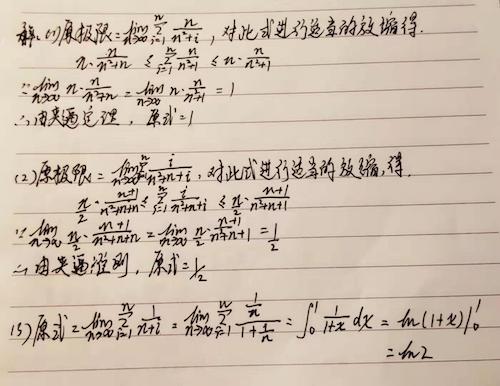 解：(1)原极限=lim_{n→∞} Σ_{i=1}^{n} n/(n²+i)，对此式进行适当的放缩得.
n·n/(n²+n) ≤ Σ_{i=1}^{n} n/(n²+i) ≤ n·n/(n²+1)
∵ lim_{n→∞} n·n/(n²+n) = lim_{n→∞} n·n/(n²+1) = 1
∴由夹逼定理，原式=1
(2)原极限=lim_{n→∞} Σ_{i=1}^{n} i/(n²+n+i)，对此式进行适当的放缩，得.
n/2·(n+1)/(n²+n+n) ≤ Σ_{i=1}^{n} i/(n²+n+i) ≤ n/2·(n+1)/(n²+n+1)
∵ lim_{n→∞} n/2·(n+1)/(n²+n+n) = lim_{n→∞} n/2·(n+1)/(n²+n+1) = 1/2
∴由夹逼准则，原式=1/2
(3)原式=lim_{n→∞} Σ_{i=1}^{n} 1/(n+i) = lim_{n→∞} Σ_{i=1}^{n} (1/n)/(1+i/n) = ∫₀¹ 1/(1+x) dx = ln(1+x)|₀¹
=ln2